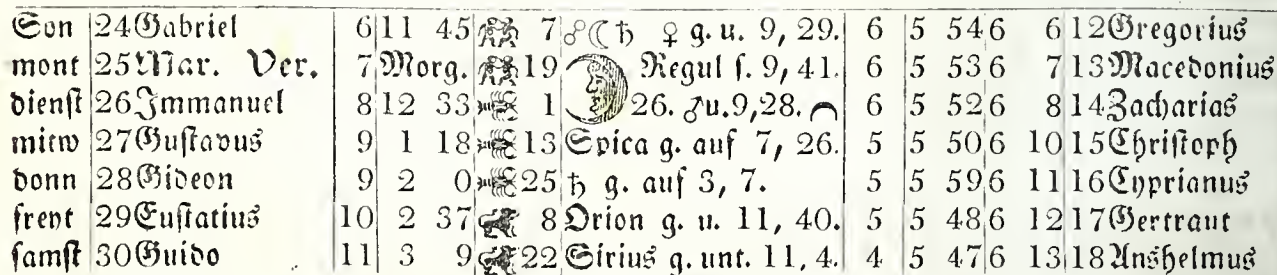 Son 24 Gabriel 6 11 45 7 ☍☾♄ ♀ g. u. 9, 29. 6 5 54 6 6 12 Gregorius
mont 25 Mar. Ver. 7 Morg. 19 Regul s. 9, 41. 6 5 53 6 7 13 Macedonius
dienst 26 Immanuel 8 12 33 1 26. ♂u.9,28. 6 5 52 6 8 14 Zacharias
mitw 27 Gustavus 9 1 18 13 Spica g. auf 7, 26. 5 5 50 6 10 15 Christoph
donn 28 Gideon 9 2 0 25 ♄ g. auf 3, 7. 5 5 59 6 11 16 Cyprianus
freyt 29 Eustatius 10 2 37 8 Orion g. u. 11, 40. 5 5 48 6 12 17 Gertraut
samst 30 Guido 11 3 9 22 Sirius g. unt. 11, 4. 4 5 47 6 13 18 Anshelmus